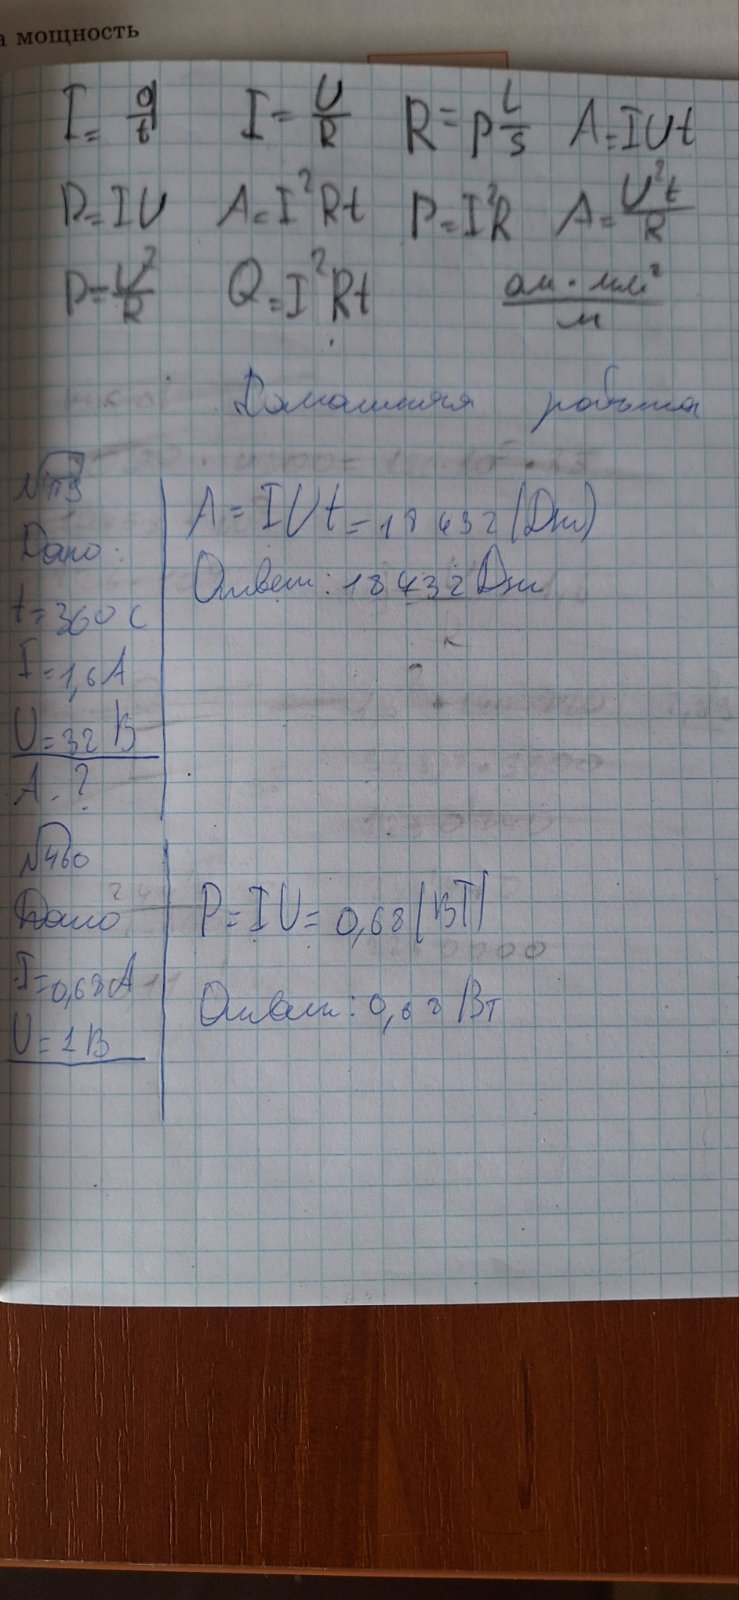 а мощность
I = q/t I = U/R R = ρ l/s A = IUt
P = IU A = I²Rt P = I²R A = U²t/R
P = U²/R Q = I²Rt ом · мм²/м
Домашняя работа
Дано:
t = 360 с
I = 1,6 А
U = 32 В
А - ?
A = IUt = 18 432 (Дж)
Ответ: 18 432 Дж
№460
Дано
I = 0,68 А
U = 1 В
P = IU = 0,68 (ВТ)
Ответ: 0,68 Вт